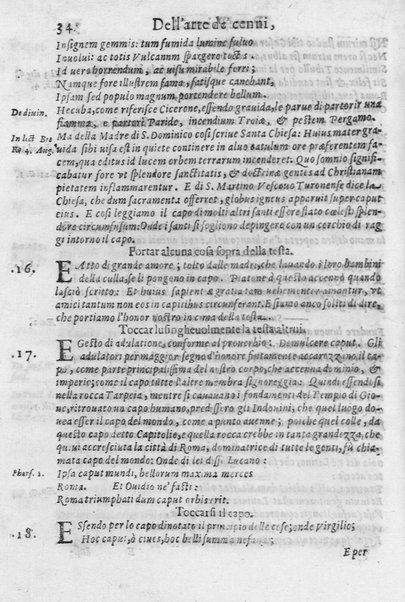 34 Dell'arte de' cenni,
Insignem gemmis: tum fumida lumine fuluo
Inuolui: ac totis Vulcanum spargere tectis
Id uero horrendum, ac uisu mirabile ferri;
Namque fore illustrem fama, fatisque canebant,
Ipsam sed populo magnum portendere bellum.
De diuin. Hecuba, come riferisce Cicerone, essendo grauida, le parue di partorir una
fiamma, e partori Paride, incendium Troiæ, & pestem Pergamo.
In lect Bre Ma della Madre di S. Dominico così scriue Santa Chiesa: Huius mater gra-
Ro 4. Aug. uida sibi uisa est in quiete continere in aluo catulum ore præferentem fa-
cem, qua editus id lucem orbem terrarum incenderet. Quo somnio signifi-
cabatur fore ut splendore sanctitatis, & doctrina gentes ad Christianam
pietatem inflammarentur. E di S. Martino Vescouo Turonense dice la
Chiesa, che dum sacramenta offerret, globus igneus apparuit super caput
eius. E così leggiamo il capo di molti altri santi essere stato cælesti splen-
dore circumfusum: Onde i santi si sogliono depingere con un cerchio di rag
gi intorno il capo.
Portar alcuna cosa sopra della testa.
.16. E Atto di grande amore; tolto dalle madri, che lauando i loro bambini
della culla, se li pongono in capo. Platone à questo accennò quando
lasciò scritto: Et huius sapientæ gratia tam uehementer amantur, ut
amici tantum non eos in capitibus circunferant. E siamo anco soliti di dire,
che portiamo l'honor nostro in cima della testa.
Toccar lusingheuolmente la testa altrui.
.17. E Gesto di adulatione, conforme al prouerbio: Demulcere caput. Gli
adulatori per maggior segno d'honore fintamente accarezzano il ca-
po, come parte principalissima del nostro corpo, che accenna dominio, &
imperio; come il capo tutte l'altre membra signoreggia: Quindi essendosi
nella rocca Tarpeia, mentre si cauauano i fondamenti del Tempio di Gio-
ue, ritrouato un capo humano, predissero gli Indouini, che quel luogo do-
uea esser il capo del mondo, come a punto auenne; poiche quel colle, da
questo capo detto Capitolio, e quella rocca crebbe in tanta grandezza, che
quiui accresciuta la città di Roma, dominatrice di tutte le genti, fù chia-
mata capo del mondo: Onde di lei diss. Lucano:
Phars. 2. Ipsa caput mundi, bellorum maxima merces
Roma. Et Ouidio ne' fasti:
Roma triumphati dum caput orbis erit.
Toccarsi il capo.
.18. E Ssendo per lo capo dinotato il principio delle cose; onde Virgilio;
Hoc caput, ò ciues, hoc belli summa nefandi.
E per